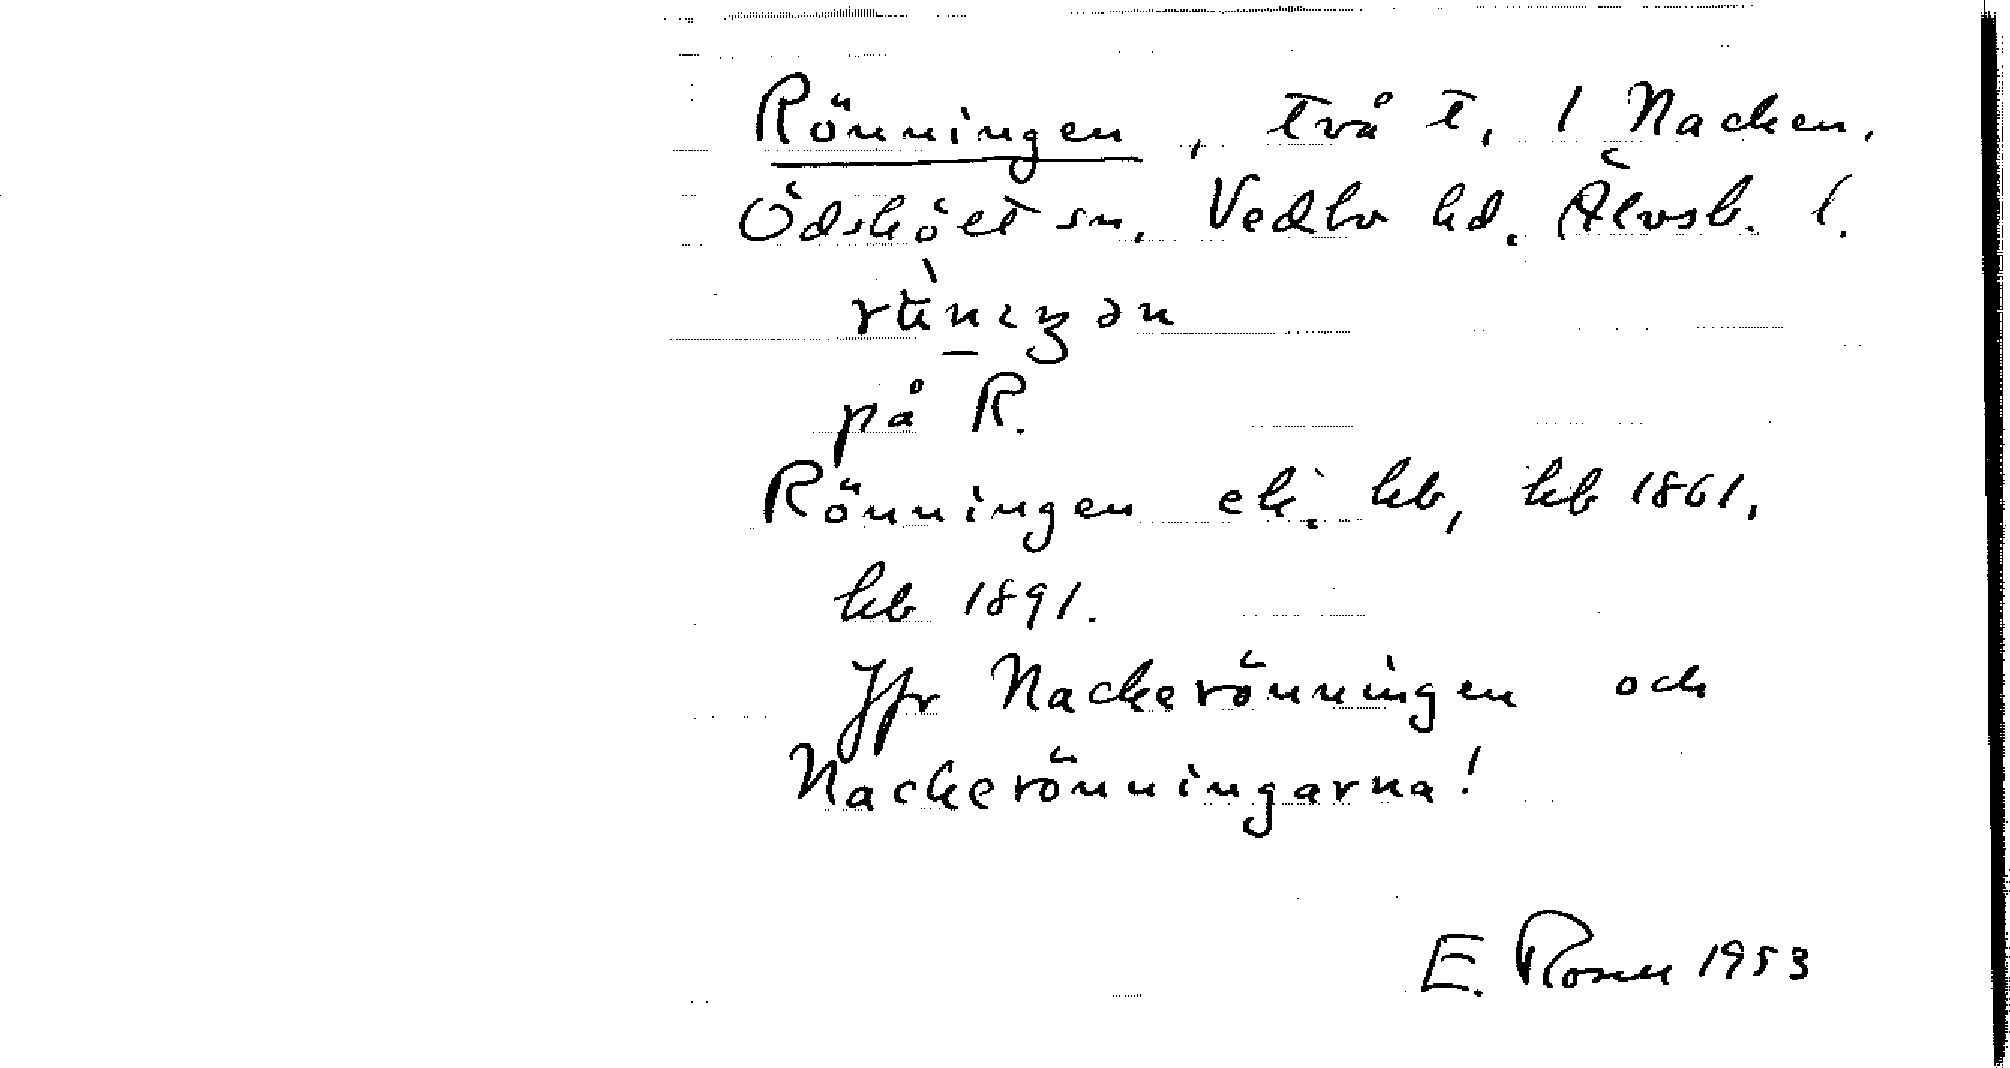 Rönningen, två t, 1 Nacken,
Ödskölt sn, Vedbo hd, Älvsb. l.
på R.
Rönningen ek. kb, kb 1861,
kb 1891.
Jfr Nackerönningen och
Nackerönningarna!
E. Rosén 1953